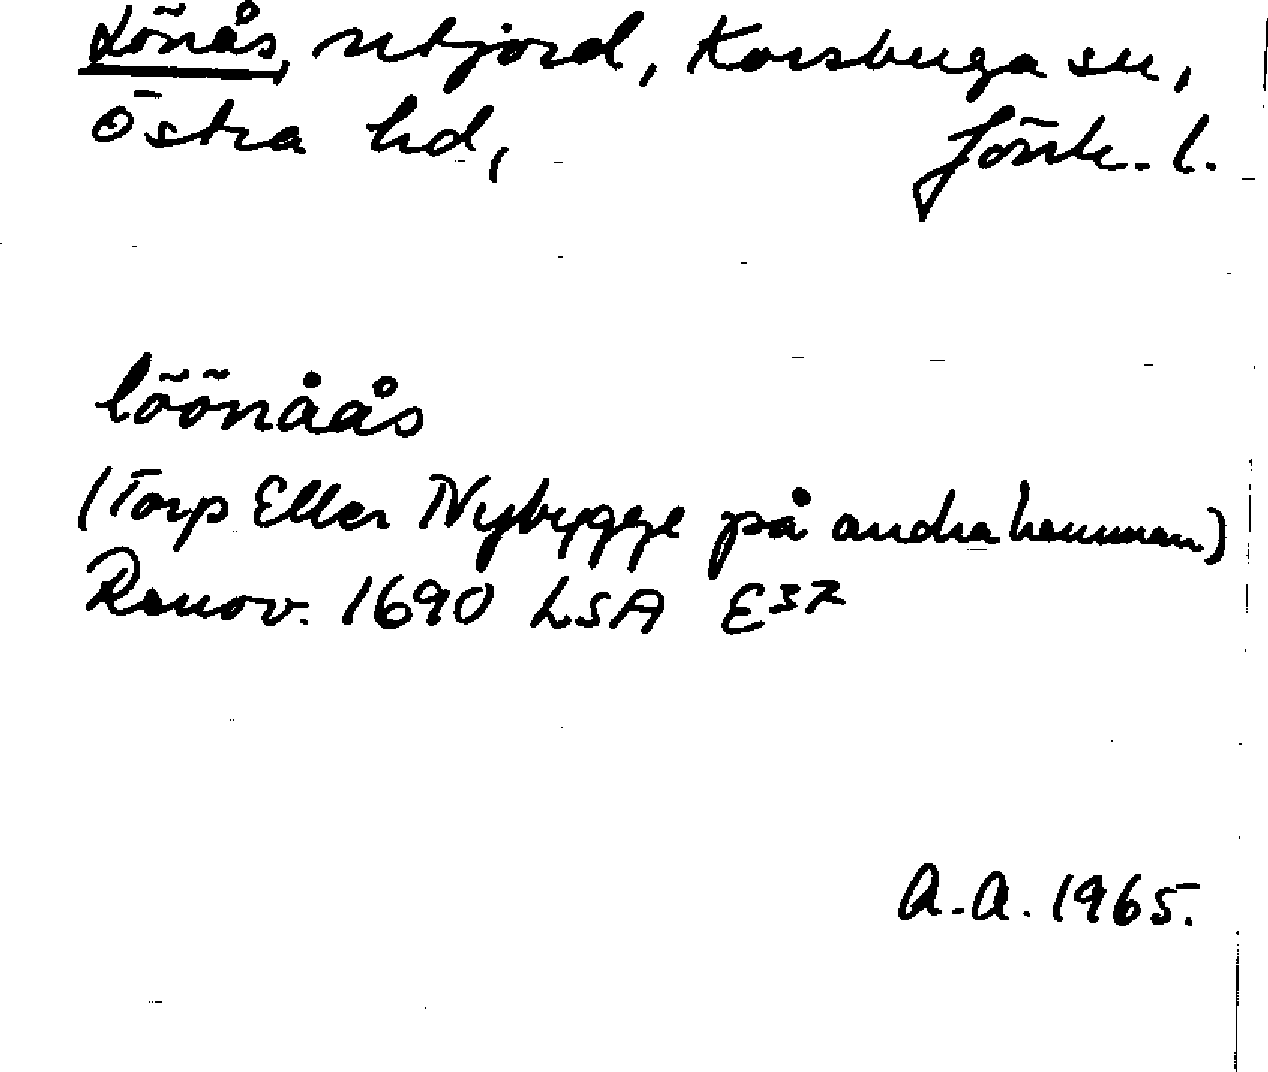 Lönås, utjord, Korsberga sn,
Östra hd, Jönk. l.
löönåås
(Torp Eller Nybygge på andra hemman)
Renov. 1690 LSA E37
A.A. 1965.